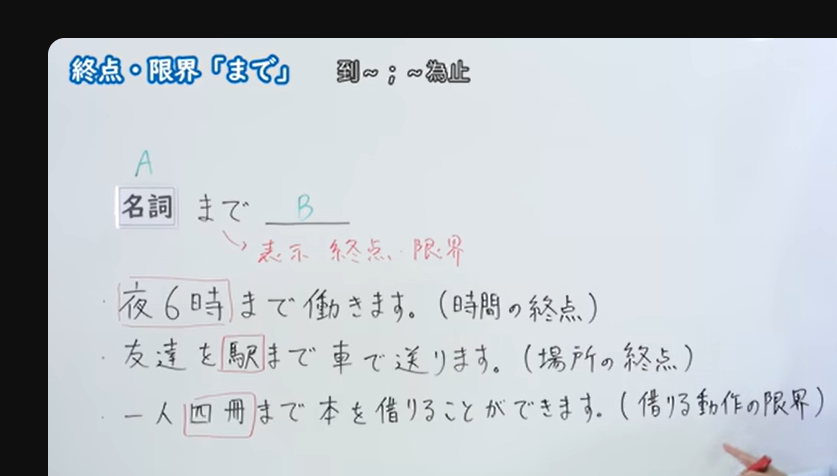 終点・限界「まで」 到～；～為止
A
名詞 まで B
表示 終点・限界
・夜6時まで働きます。(時間の終点)
・友達を駅まで車で送ります。(場所の終点)
・一人四冊まで本を借りることができます。(借りる動作の限界)